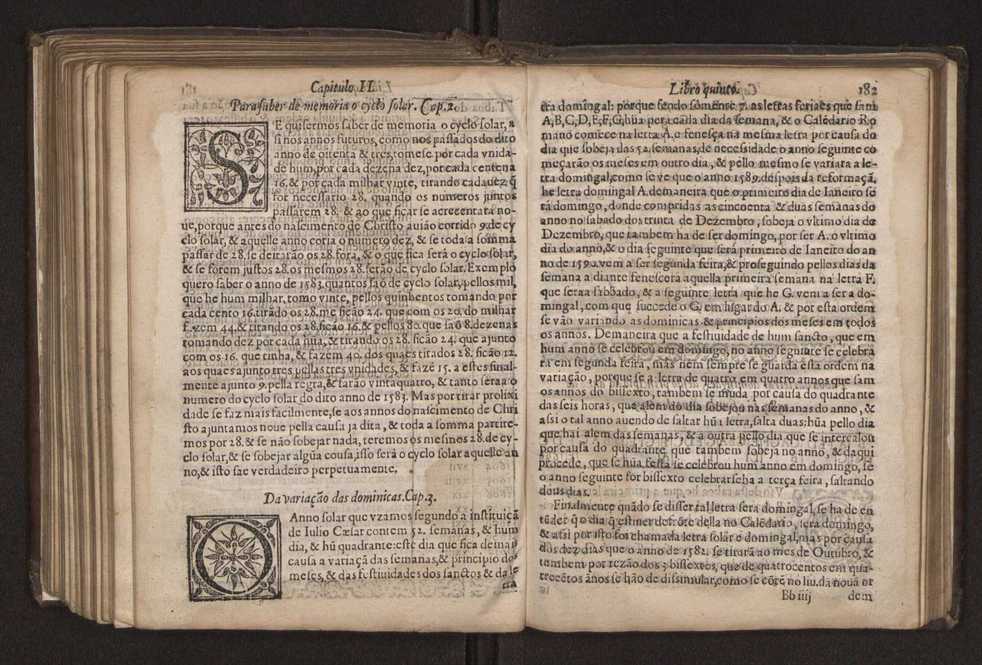 Capitulo II.
Para saber de memoria o cyclo solar. Cap. 2.
SE quisermos saber de memoria o cyclo solar, a
si nos annos futuros, como nos passados do dito
anno de oitenta & tres, tomese por cada vnida-
de hum, por cada dezena dez, por cada centena
16. & por cada milhar vinte, tirando cada uez q̃
for necessario 28. quando os numeros juntos
passarem 28. & ao que ficar se acrecentara no-
ue, porque antes do nascimento de Christo auião corrido 9. de cy
clo solar, & aquelle anno corria o numero dez, & se toda a somma
passar de 28. se deitarão os 28. fora, & o que fica será o cyclo solar,
& se forem justos 28. os mesmos 28. serão de cyclo solar. Exemplo
quero saber o anno de 1583. quantos são de cyclo solar, pellos mil,
que he hum milhar, tomo vinte, pellos quinhentos tomando por
cada cento 16. tirãdo os 28. me ficão 24. que com os 20. do milhar
fazem 44. & titando os 28. ficão 16. & pellos 80. que são 8. dezenas
tomando dez por cada hũa, & titando os 28. ficão 24. que ajunto
com os 16. que tinha, & fazem 40. dos quaes titados 28. ficão 12.
aos quaes ajunto tres pellas tres vnidades, & fazẽ 15. a estes final-
mente ajunto 9. pella regra, & farão vinta quatro, & tanto sera o
numero do cyclo solar do dito anno de 1583. Mas por titar prolixi
dade se faz mais facilmente, se aos annos do nascimento de Chri
sto ajuntamos noue pella causa ja dita, & toda a somma partire-
mos por 28. & se não sobejar nada, teremos os mesmos 28. de cy-
clo solar, & se sobejar algũa cousa, isso será o cyclo solar aquelle an
no, & isto sae verdadeiro perpetuamente.
Da variação das dominicas. Cap. 3.
O Anno solar que vzamos segundo a instituiçã
de Iulio Cæsar contem 52. semanas, & hum
dia, & hũ quadrante: este dia que fica demais
causa a variaçã das semanas, & principio do
meses, & das festiuidades dos sanctos & da le
tra
Libro quinto. 182
tra domingal: porque sendo sómente 7. as letras feriaes que sam
A, B, C, D, E, F, G, hũa pera cada dia da semana, & o Calẽdario Ro
mano comece na letra A. e fenesça na mesma letra por causa do
dia que sobeja das 52. semanas, de necessidade o anno seguinte co
meçarão os meses em outro dia, & pello mesmo se variara a le-
tra domingal, como se ve que o anno 1589. despois da reformaçã,
he letra domingal A. demaneira que o primeiro dia de Ianeiro se
rá domingo, donde compridas as cincoenta & duas semanas do
anno no sabado dos trinta de Dezembro, sobeja o vltimo dia de
Dezembro, que tambem ha de ser domingo, por ser A. o vltimo
dia do anno, & o dia seguinte que será primeiro de Ianeiro do an
no de 1590. vem a ser segunda feira, & proseguindo pellos dias da
semana a diante fenescera aquella primeira semana na letra F.
que sera a sabbado, & a seguinte letra que he G. vem a ser a do-
mingal, com que succede o G. em lugar do A. & por esta ordem
se vão variando as dominicas & principios dos meses em todos
os annos. Demaneira que a festiuidade de hum sancto, que em
hum anno se celebrou em domingo, no anno seguinte se celebra
ra em segunda feira, mas nem sempre se guarda esta ordem na
variação, porque se a letra de quatro em quatro annos que sam
os annos do bissexto, tambem se muda por causa do quadrante
das seis horas, que alem do dia sobejou nas semanas do anno, &
asi o tal anno auendo de saltar hũa letra, salta duas; hũa pello dia
que hai alem das semanas, & a outra pello dia que se intercalou
por causa do quadrante que tambem sobeja no anno, & daqui
procede, que se hũa festa se celebrou hum anno em domingo, se
o anno seguinte for bissexto celebrarseha a terça feira, saltando
dous dias.
Finalmente quãdo se disser tal letra sera domingal, se ha de en
tẽder q̃ o dia q̃ estiuer defrõte della no Calẽdario, sera domingo,
& asi por isto foi chamada letra solar e domingal, mas por causa
dos dez dias que o anno de 1582. se titarão no mes de Outubro, &
tambem por rezão dos 3. bissextos, que de quatrocentos em qua-
trocẽtos ãnos se hão de dissimular, como se cõtẽ no liu. da noua or
Bb iiij dem